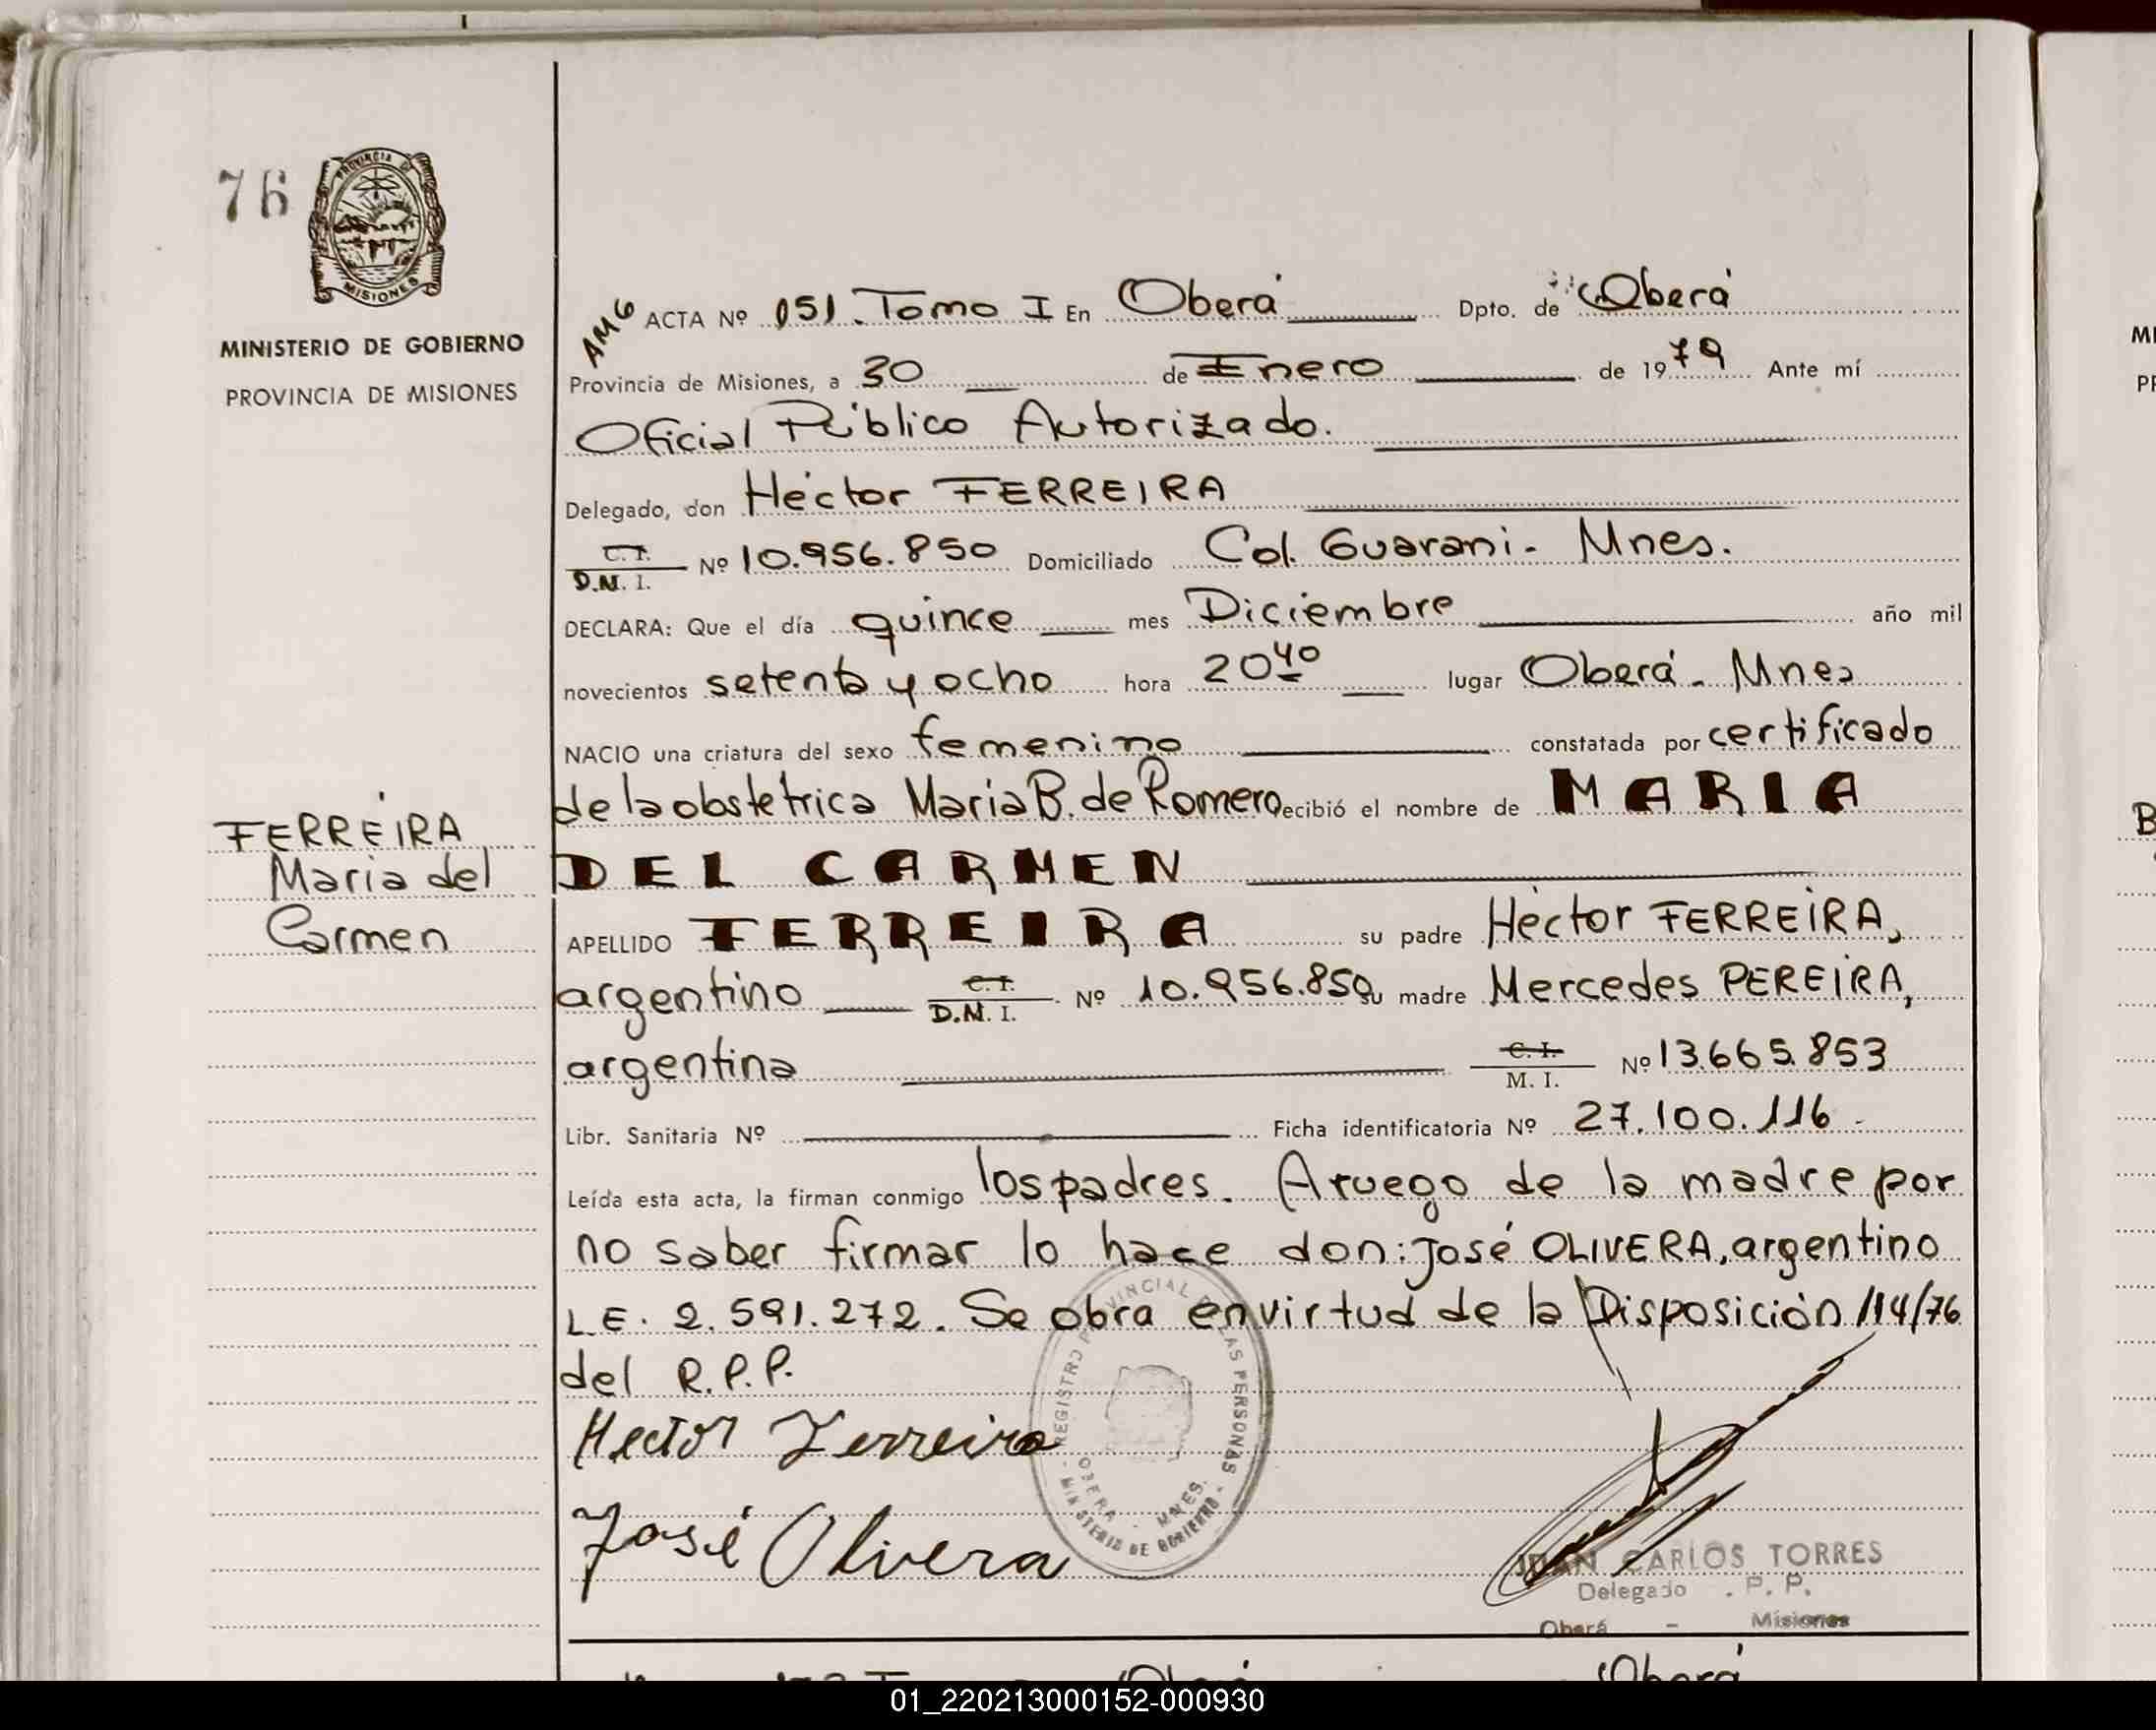 76
PROVINCIA DE
MISIONES
MINISTERIO DE GOBIERNO
PROVINCIA DE MISIONES
FERREIRA
Maria del
Carmen
AMG ACTA Nº 151. Tomo I En Oberá Dpto. de Oberá
Provincia de Misiones, a 30 de Enero de 1979 Ante mí
Oficial Público Autorizado.
Delegado, don Héctor FERREIRA
C.I.
D.N.I. Nº 10.956.850 Domiciliado Col. Guarani - Mnes.
DECLARA: Que el día quince mes Diciembre año mil
novecientos setenta y ocho hora 20 40 lugar Oberá - Mnes
NACIO una criatura del sexo femenino constatada por certificado
de la obstetrica Maria B. de Romero ecibió el nombre de MARIA
DEL CARMEN
APELLIDO FERREIRA su padre Héctor FERREIRA,
argentino C.I. D.N.I. Nº 10.956.850 su madre Mercedes PEREIRA,
argentina C. I. M. I. Nº 13.665.853
Libr. Sanitaria Nº Ficha identificatoria Nº 27.100.116 -
Leída esta acta, la firman conmigo los padres. A ruego de la madre por
no saber firmar lo hace don: José OLIVERA, argentino
L.E. 2.591.272. Se obra en virtud de la Disposición 114/76
del R.P.P.
Hector Ferreira
José Olivera
REGISTRO PROVINCIAL DE LAS PERSONAS
OBERA - MNES.
MINISTERIO DE GOBIERNO
JUAN CARLOS TORRES
Delegado . P. P.
Oberá - Misiones
Oberá Oberá
01_220213000152-000930